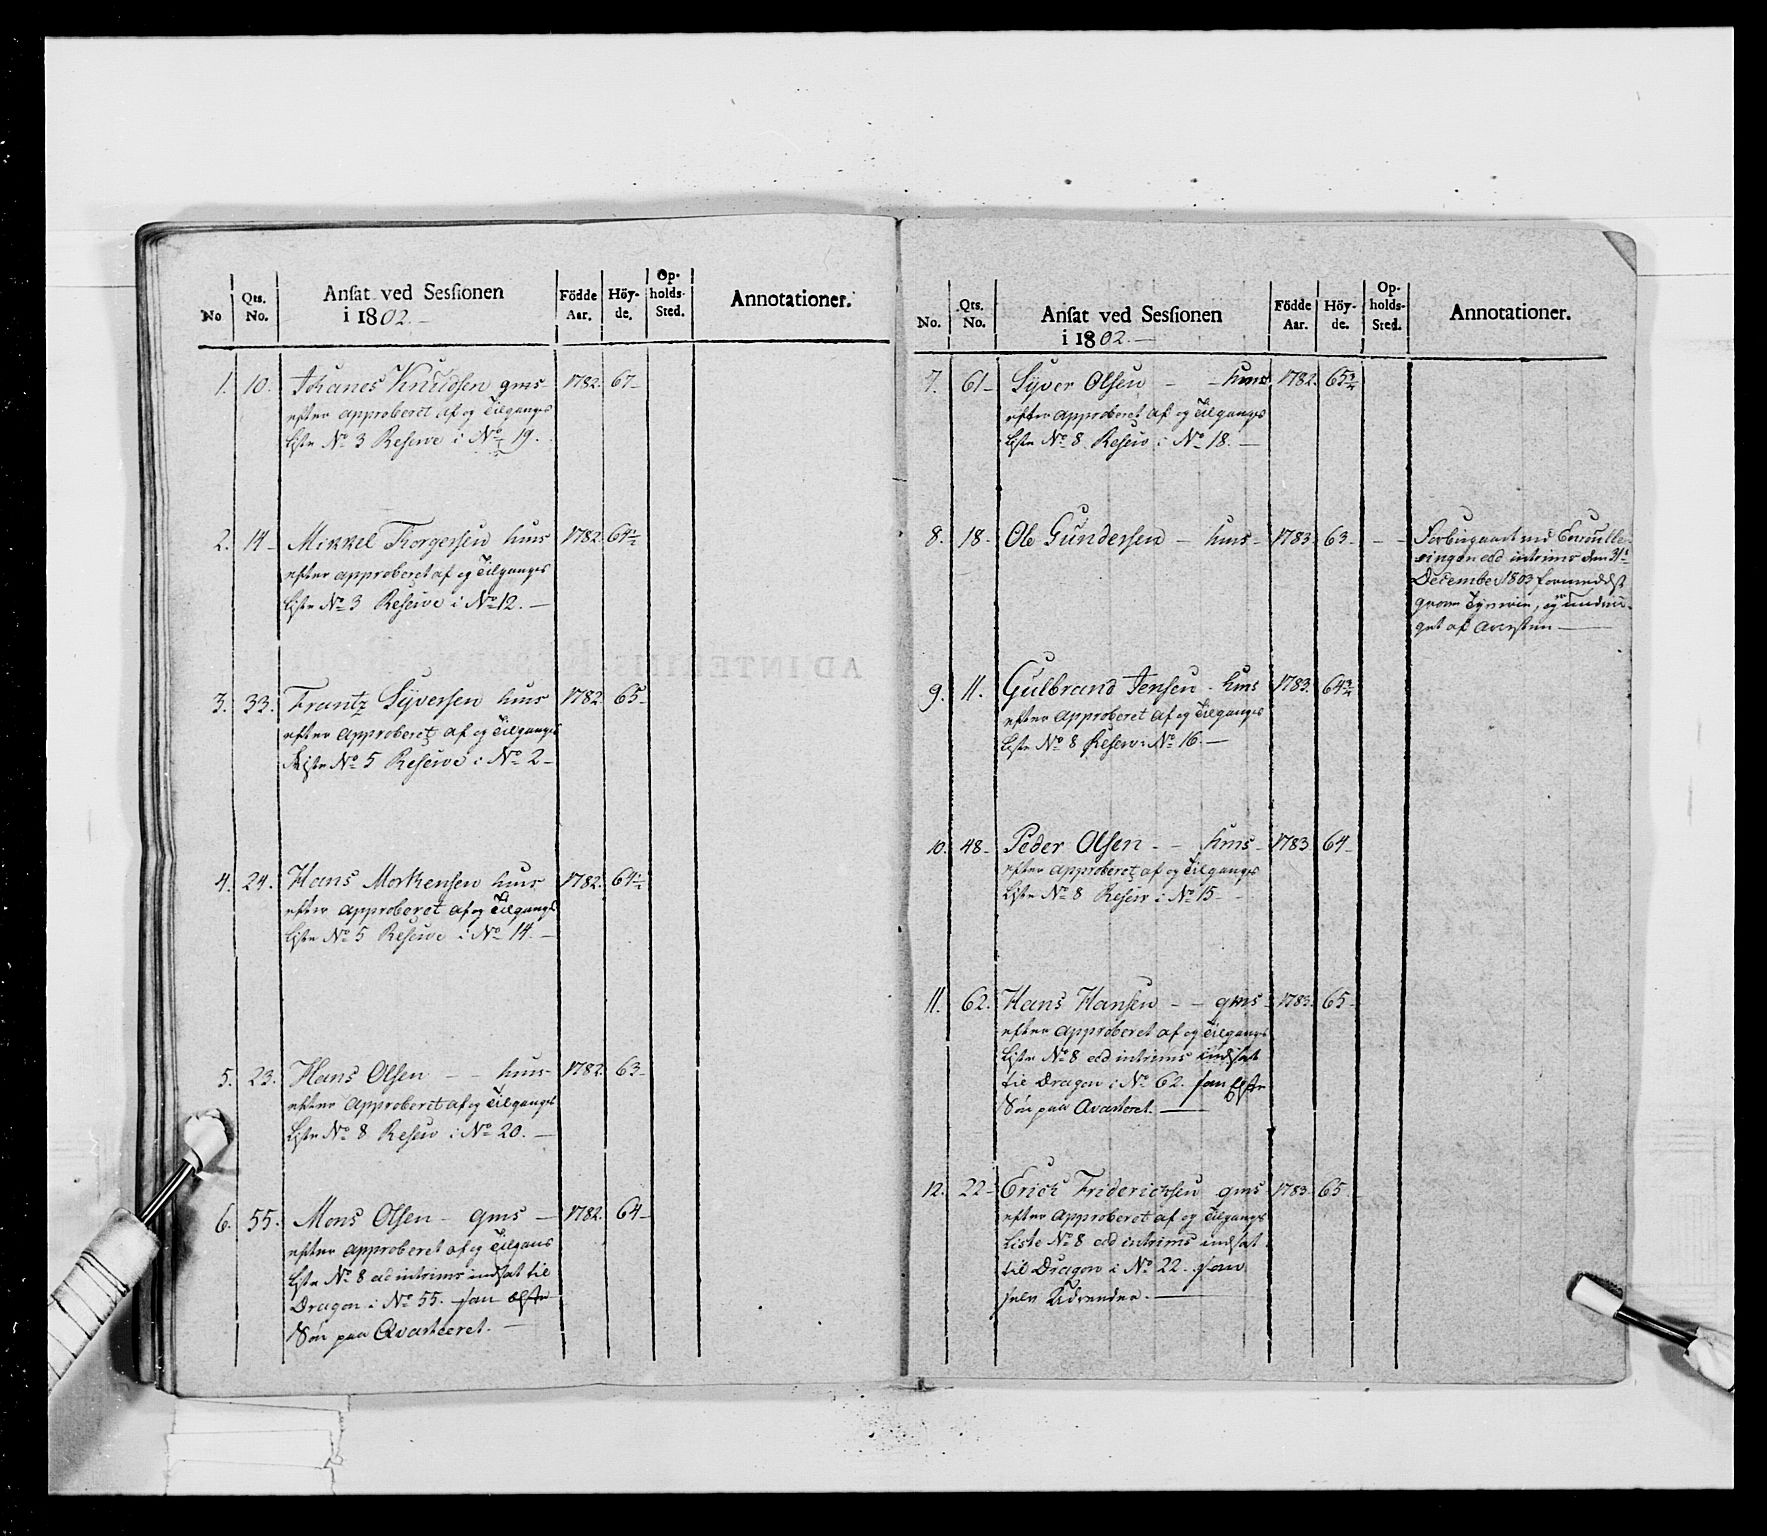 No
Qts.
No.
Ansat ved Sessionen
i 1802.
Födde
Aar.
Höy-
de.
Op-
holds-
Sted.
Annotationer.
1. 10. Johanes Knudsen gms 1782. 67
efter approberet af og Tilgangs
liste No 3 Reserve i No 19.
2. 14 Mikkel Torgersen hms 1782. 64½
efter approberet af og Tilgangs
liste No 3 Reserve i No 12.
3. 33. Frantz Syversen hms 1782 65
efter approberet af og Tilgangs
Liste No 5 Reserve i No 2
4. 24. Hans Morkensen hms 1782. 64½
efter approberet af og Tilgangs
liste No 5 Reserve i No 14.
5. 23. Hans Olsen hms 1782. 63
efter approberet af og Tilgangs
liste No 8 Reserv i No 20.
6. 55. Mons Olsen gms 1782. 64
efter approberet af og Tilgans
liste No 8 ad intrims indsat til
Dragon i No 55.
Søn paa Qvarteeret.
No.
Qts.
No.
Ansat ved Sessionen
i 1802.
Födde
Aar.
Höy-
de.
Op-
holds-
Sted.
Annotationer.
7. 61 Syver Olsen hms 1782. 65¾
efter approberet af og Tilgangs
liste No 8 Reserv i No 18.
8. 18. Ole Gundersen hms 1783. 63
December 1803
af
9. 11. Gulbrand Jensen hms 1783. 64¾
efter approberet af og Tilgangs
liste No 8 Reserv i No 16.
10. 48 Peder Olsen hms 1783 64
efter approberet af og Tilgangs
liste No 8 Reserv i No 15
11. 62. Hans Hansen gms 1783. 65
efter approberet af og Tilgangs
liste No 8 ad intrims indsat
til Dragon i No 62.
Søn paa Qvarteret.
12. 22 Erick Friderichsen gms 1783 65
efter approberet af og Tilgangs
Liste No 8 ad intrims indsat
til Dragon i No 22.
selv